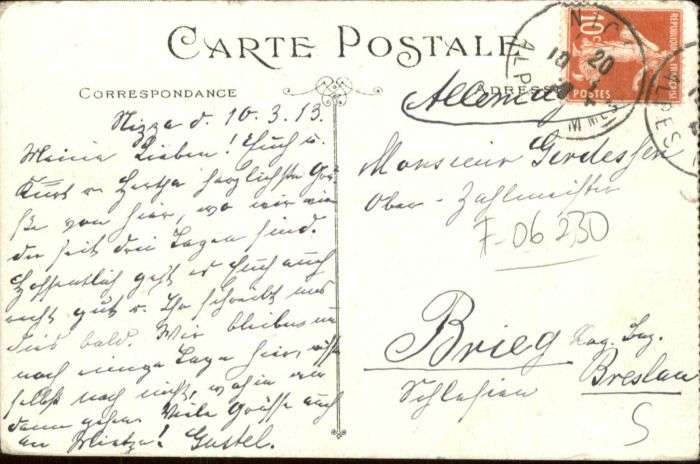 CARTE POSTALE
CORRESPONDANCE
ADRESSE
Nizza d. 10.3.13.
Meine Lieben! Euch u.
Kurt u. Hertha herzlichste Grü-
ße von hier, wo wir wie-
der seit drei Tagen sind.
Hoffentlich geht es Euch auch
recht gut u. Ihr schreibt uns
bald. Wir bleiben
noch einige Tage hier, wissen
selbst noch nicht, wohin wir
dann gehen. Viele Grüsse auch
an Mietze! Gustel.
Allemagne
Monsieur Gerdessen
Ober-Zahlmeister
F-06230
Brieg
Schlesien
Reg. Bez.
Breslau
S
10
REPUBLIQUE FRANÇAISE
POSTES
NICE
ALPES
20
10